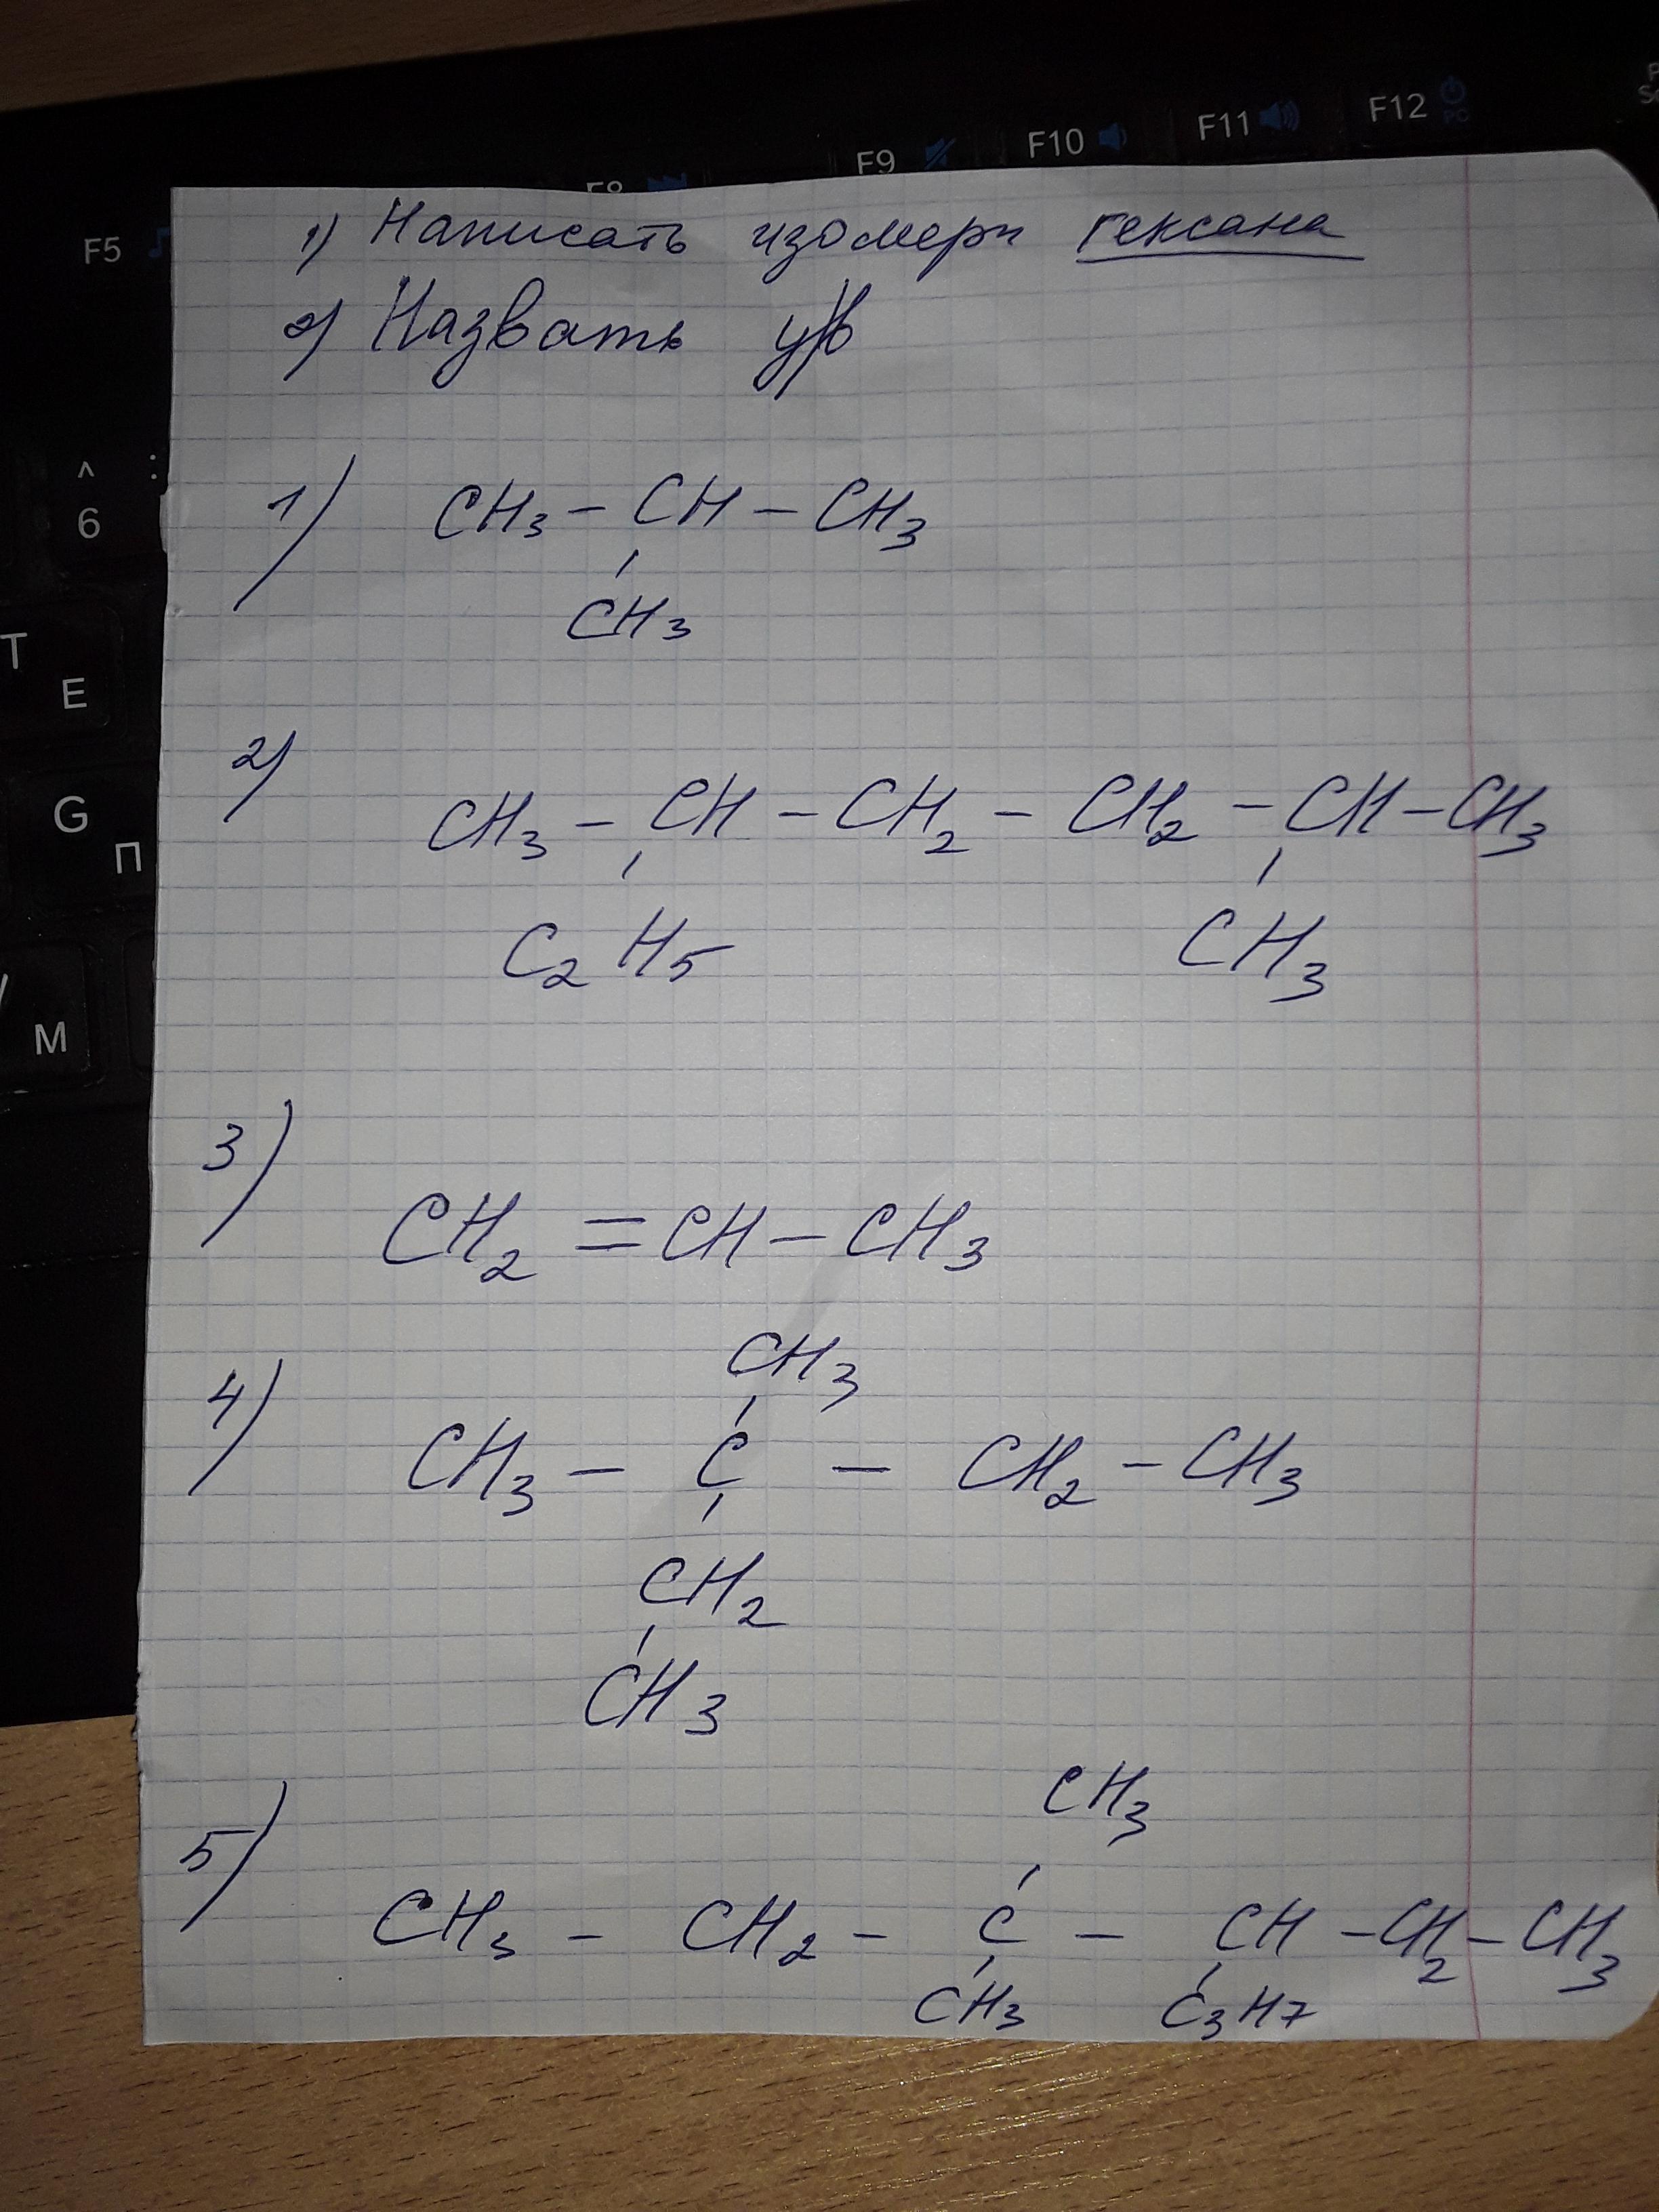 F5 F8 F9 F10 F11 F12
^ :
6
T
E
G
П
M
1) Написать изомеры гексана
2) Назвать у/в
1) CH3 – CH – CH3
CH3
2) CH3 – CH – CH2 – CH2 – CH – CH3
C2H5 CH3
3) CH2 = CH – CH3
CH3
4) CH3 – C – CH2 – CH3
CH2
CH3
CH3
5) CH3 – CH2 – C – CH – CH2 – CH3
CH3 C3H7